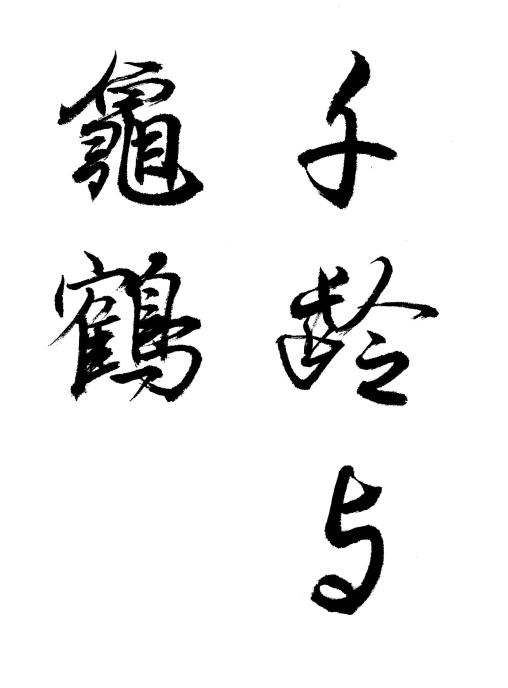 千齢与
龜鶴